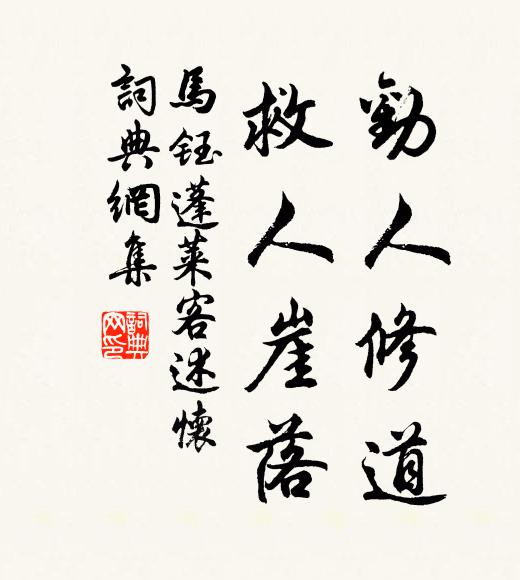 勸人修道
救人崖落
馬鈺蓬萊客述懷
詞典網集
詞典
网印